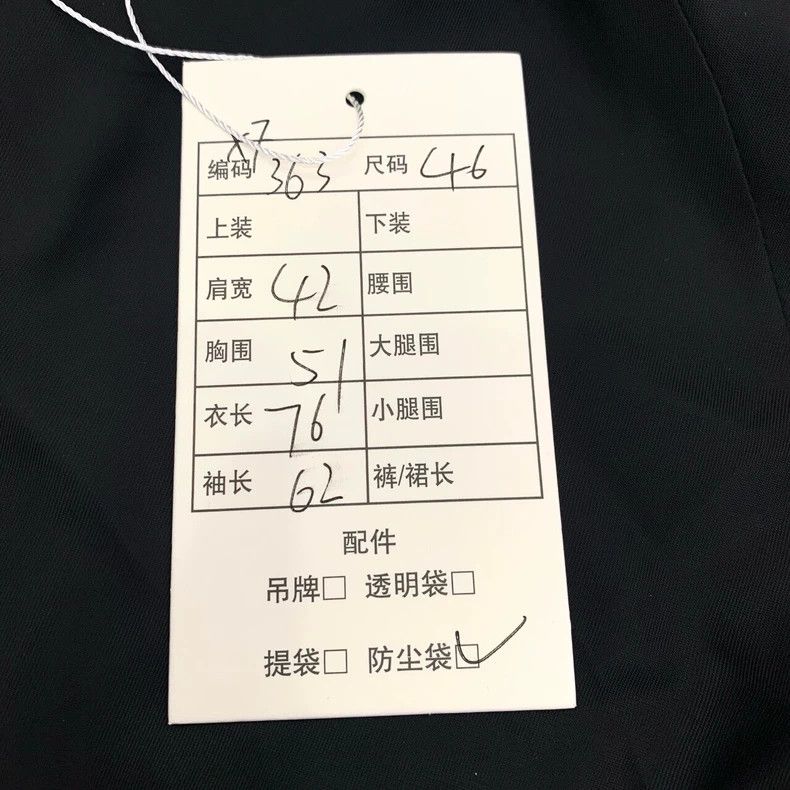 X7
编码 363 尺码 46
上装 下装
肩宽 42 腰围
胸围 51 大腿围
衣长 76 小腿围
袖长 62 裤/裙长
配件
吊牌□ 透明袋□
提袋□ 防尘袋☑